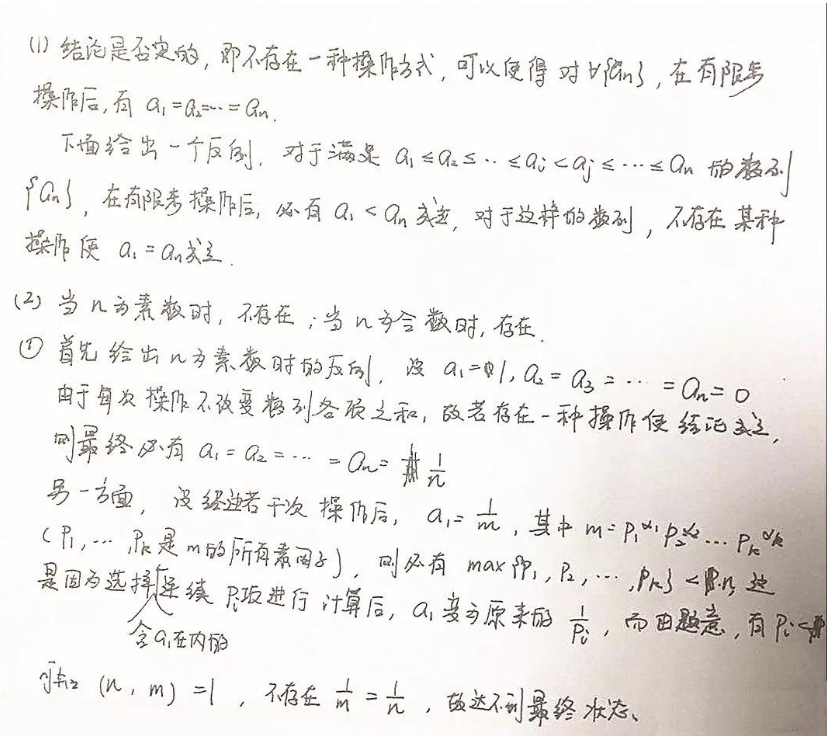 (1) 结论是否定的, 即不存在一种操作方式, 可以使得对∀{an}, 在有限步
操作后, 有 a₁=a₂=…=an.
下面给出一个反例, 对于满足 a₁≤a₂≤…≤ai<aj≤…≤an 的数列
{an}, 在有限步操作后, 必有 a₁<an 成立, 对于这样的数列, 不存在某种
操作使 a₁=an成立.
(2) 当n为素数时, 不存在; 当n为合数时, 存在.
① 首先给出n为素数时的反例, 设 a₁=1, a₂=a₃=…=an=0
由于每次操作不改变数列各项之和, 故若存在一种操作使结论成立,
则最终必有 a₁=a₂=…=an= 1/n
另一方面, 设经过若干次操作后, a₁= 1/m, 其中 m=p₁^α₁ p₂^α₂ … pk^αk
(p₁, …, pk 是m的所有素因子), 则必有 max{p₁, p₂, …, pk}<n, 这
是因为选择含a₁在内的连续Pi项进行计算后, a₁变为原来的 1/pi, 而由题意, 有 pi<
(n, m)=1, 不存在 1/m = 1/n, 故达不到最终状态.